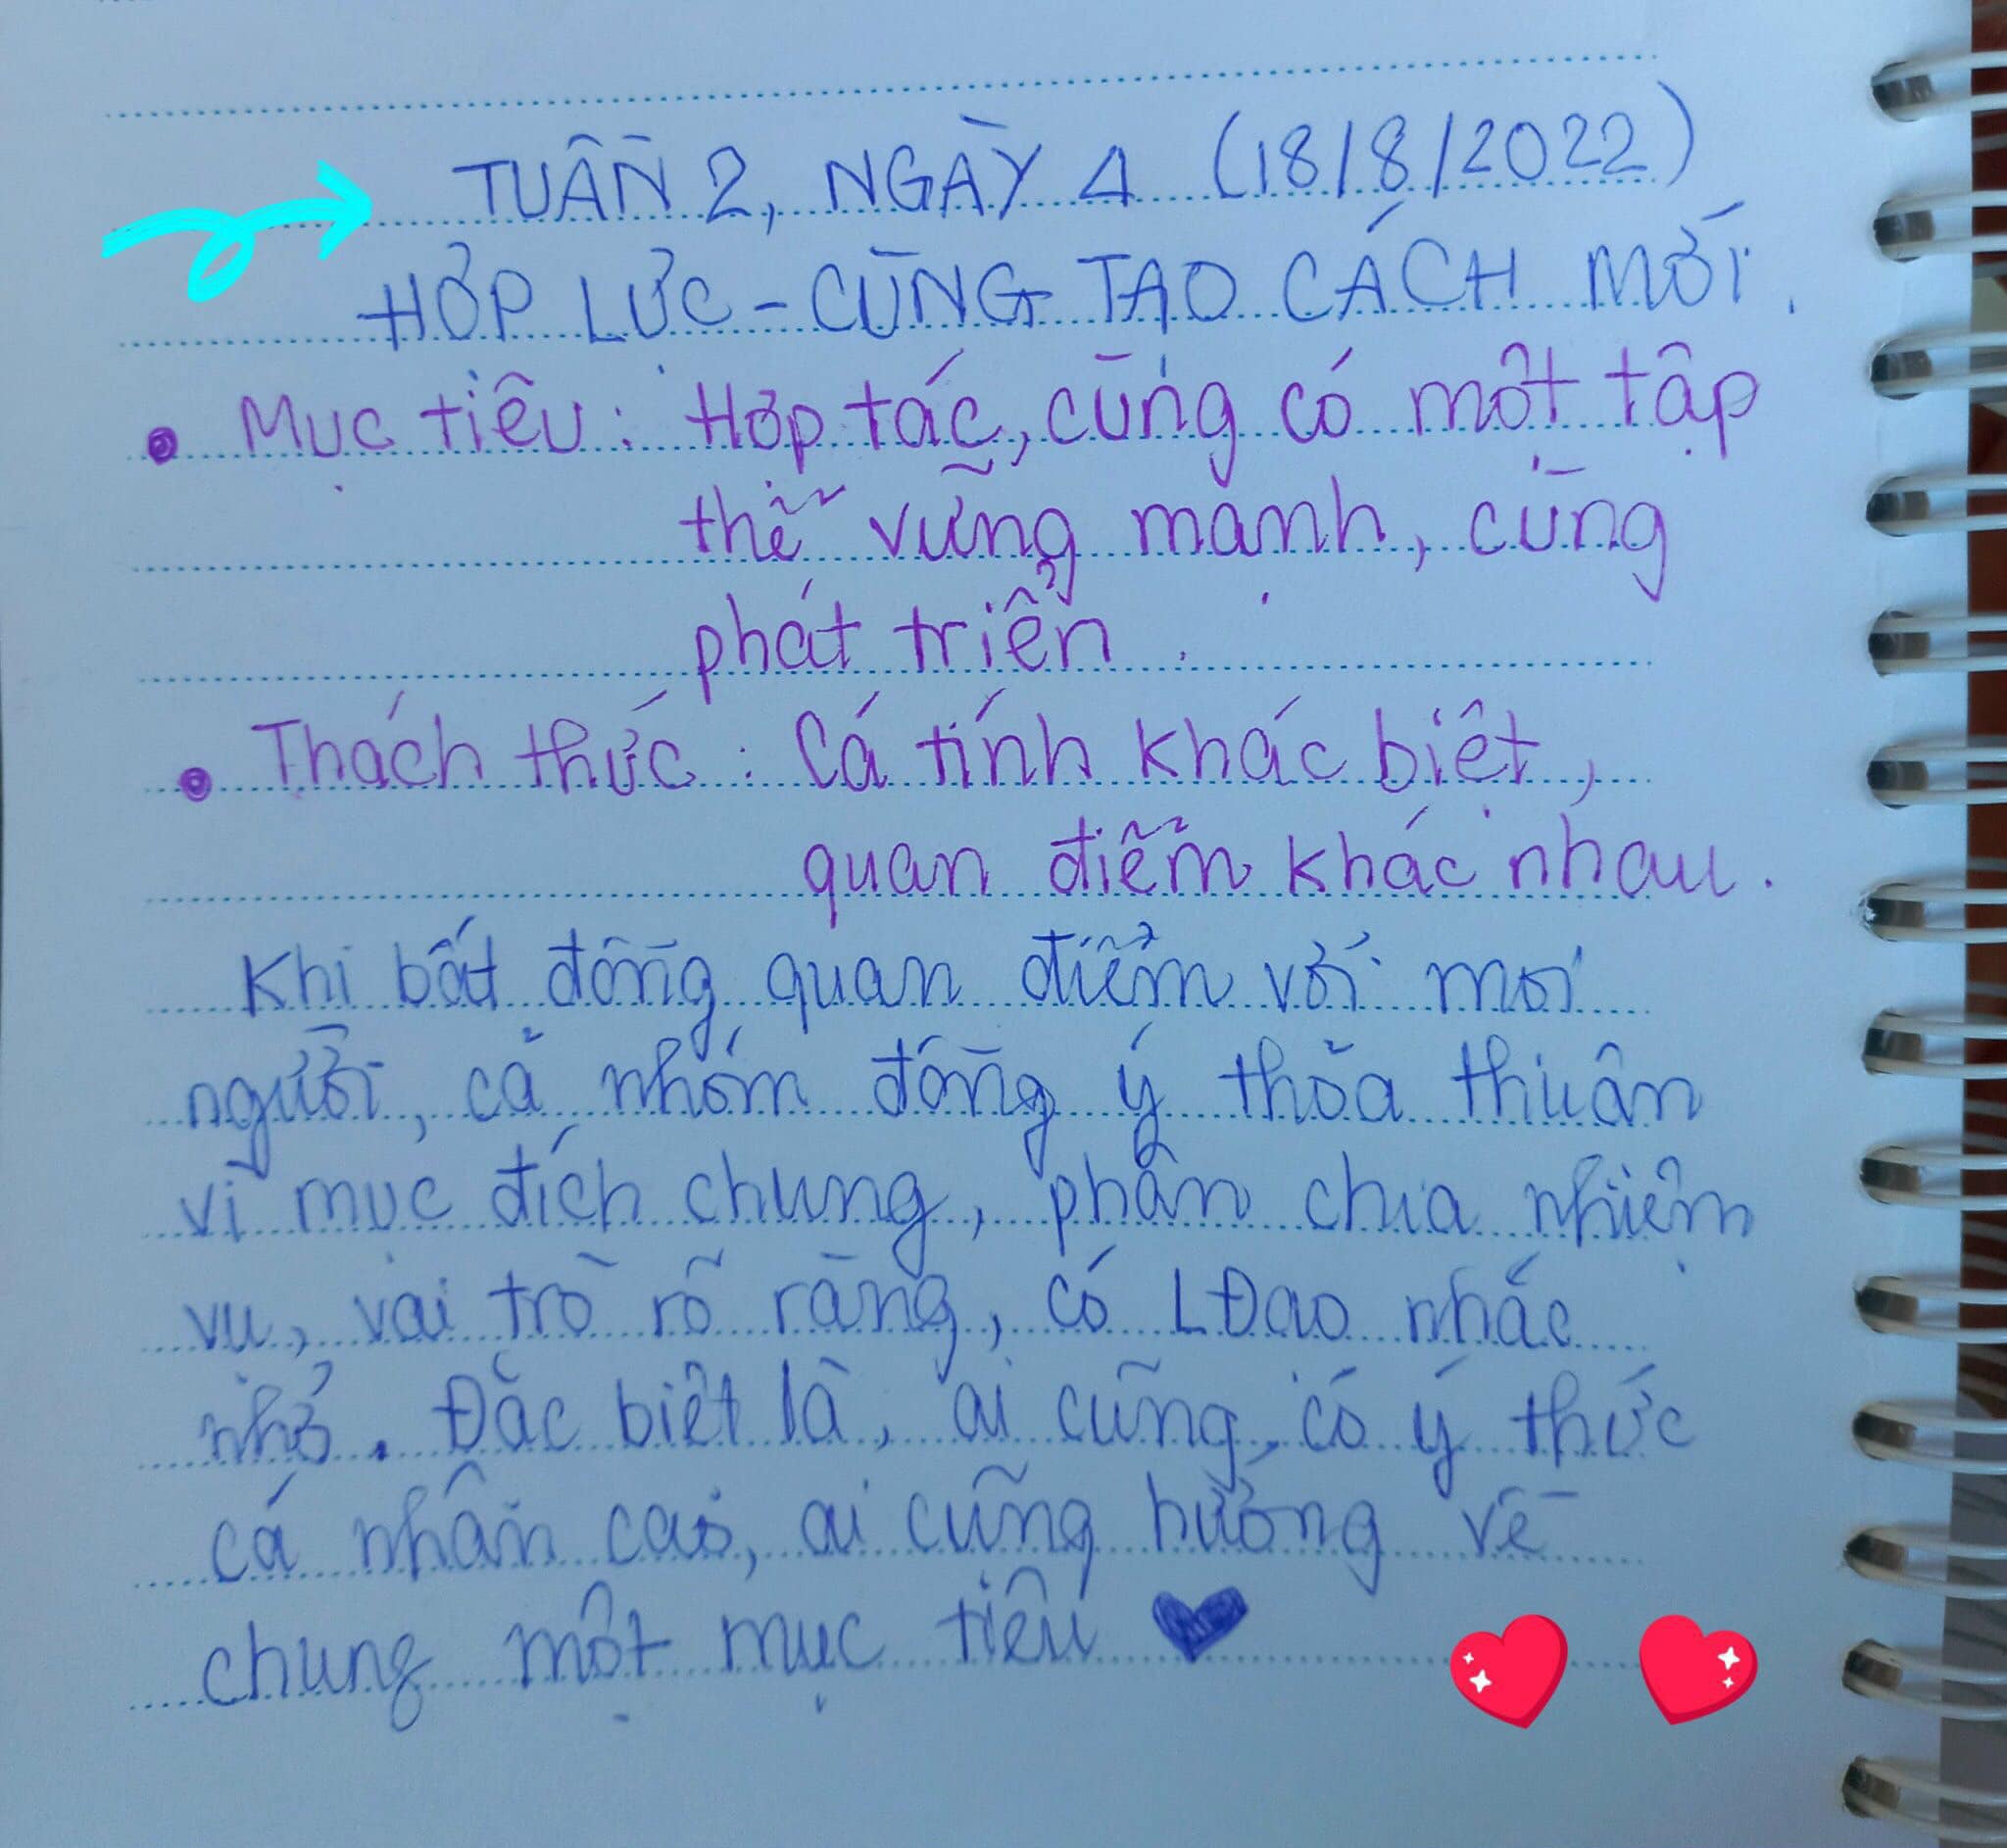 TUẦN 2, NGÀY 4 (18/8/2022)
HỢP LỰC - CÙNG TẠO CÁCH MỚI.
Mục tiêu: Hợp tác, cùng có một tập
thể vững mạnh, cùng
phát triển.
Thách thức: Cá tính khác biệt,
quan điểm khác nhau.
Khi bất đồng quan điểm với mọi
người, cả nhóm đồng ý thỏa thuận
vì mục đích chung, phân chia nhiệm
vụ, vai trò rõ ràng, có LĐạo nhắc
nhở. Đặc biệt là, ai cũng có ý thức
cá nhân cao, ai cũng hướng về
chung một mục tiêu